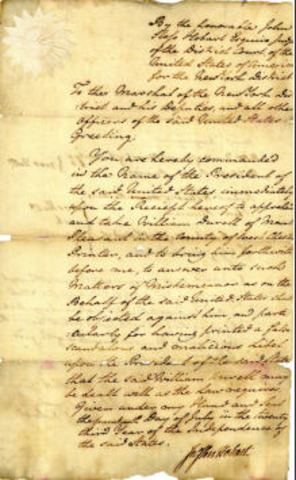 By the honorable John
Sloss Hobart Esquire Judge
of the District Court of the
United States of America
for the New York District
To the Marshal of the New York Dis
trict and his Deputies, and all other
Officers of the said United States
Greeting
You are hereby commanded
in the Name of the President of
the said United States immediately
upon the Receipt hereof to apprehend
and take William Durell of Mount
Pleasant in the County of Westchester
Printer, and to bring him forthwith
before me, to answer unto such
Matters of Misdemeanor as on the
Behalf of the said United States shall
be objected against him, and parti
cularly for having printed a false
scandalous and malicious Libel
upon the President of the said States
that the said William Durell may
be dealt with as the Law requires
Given under my Hand and Seal
Day of July in the twenty
third Year of the Independence of
the said States.
Jn Sloss Hobart